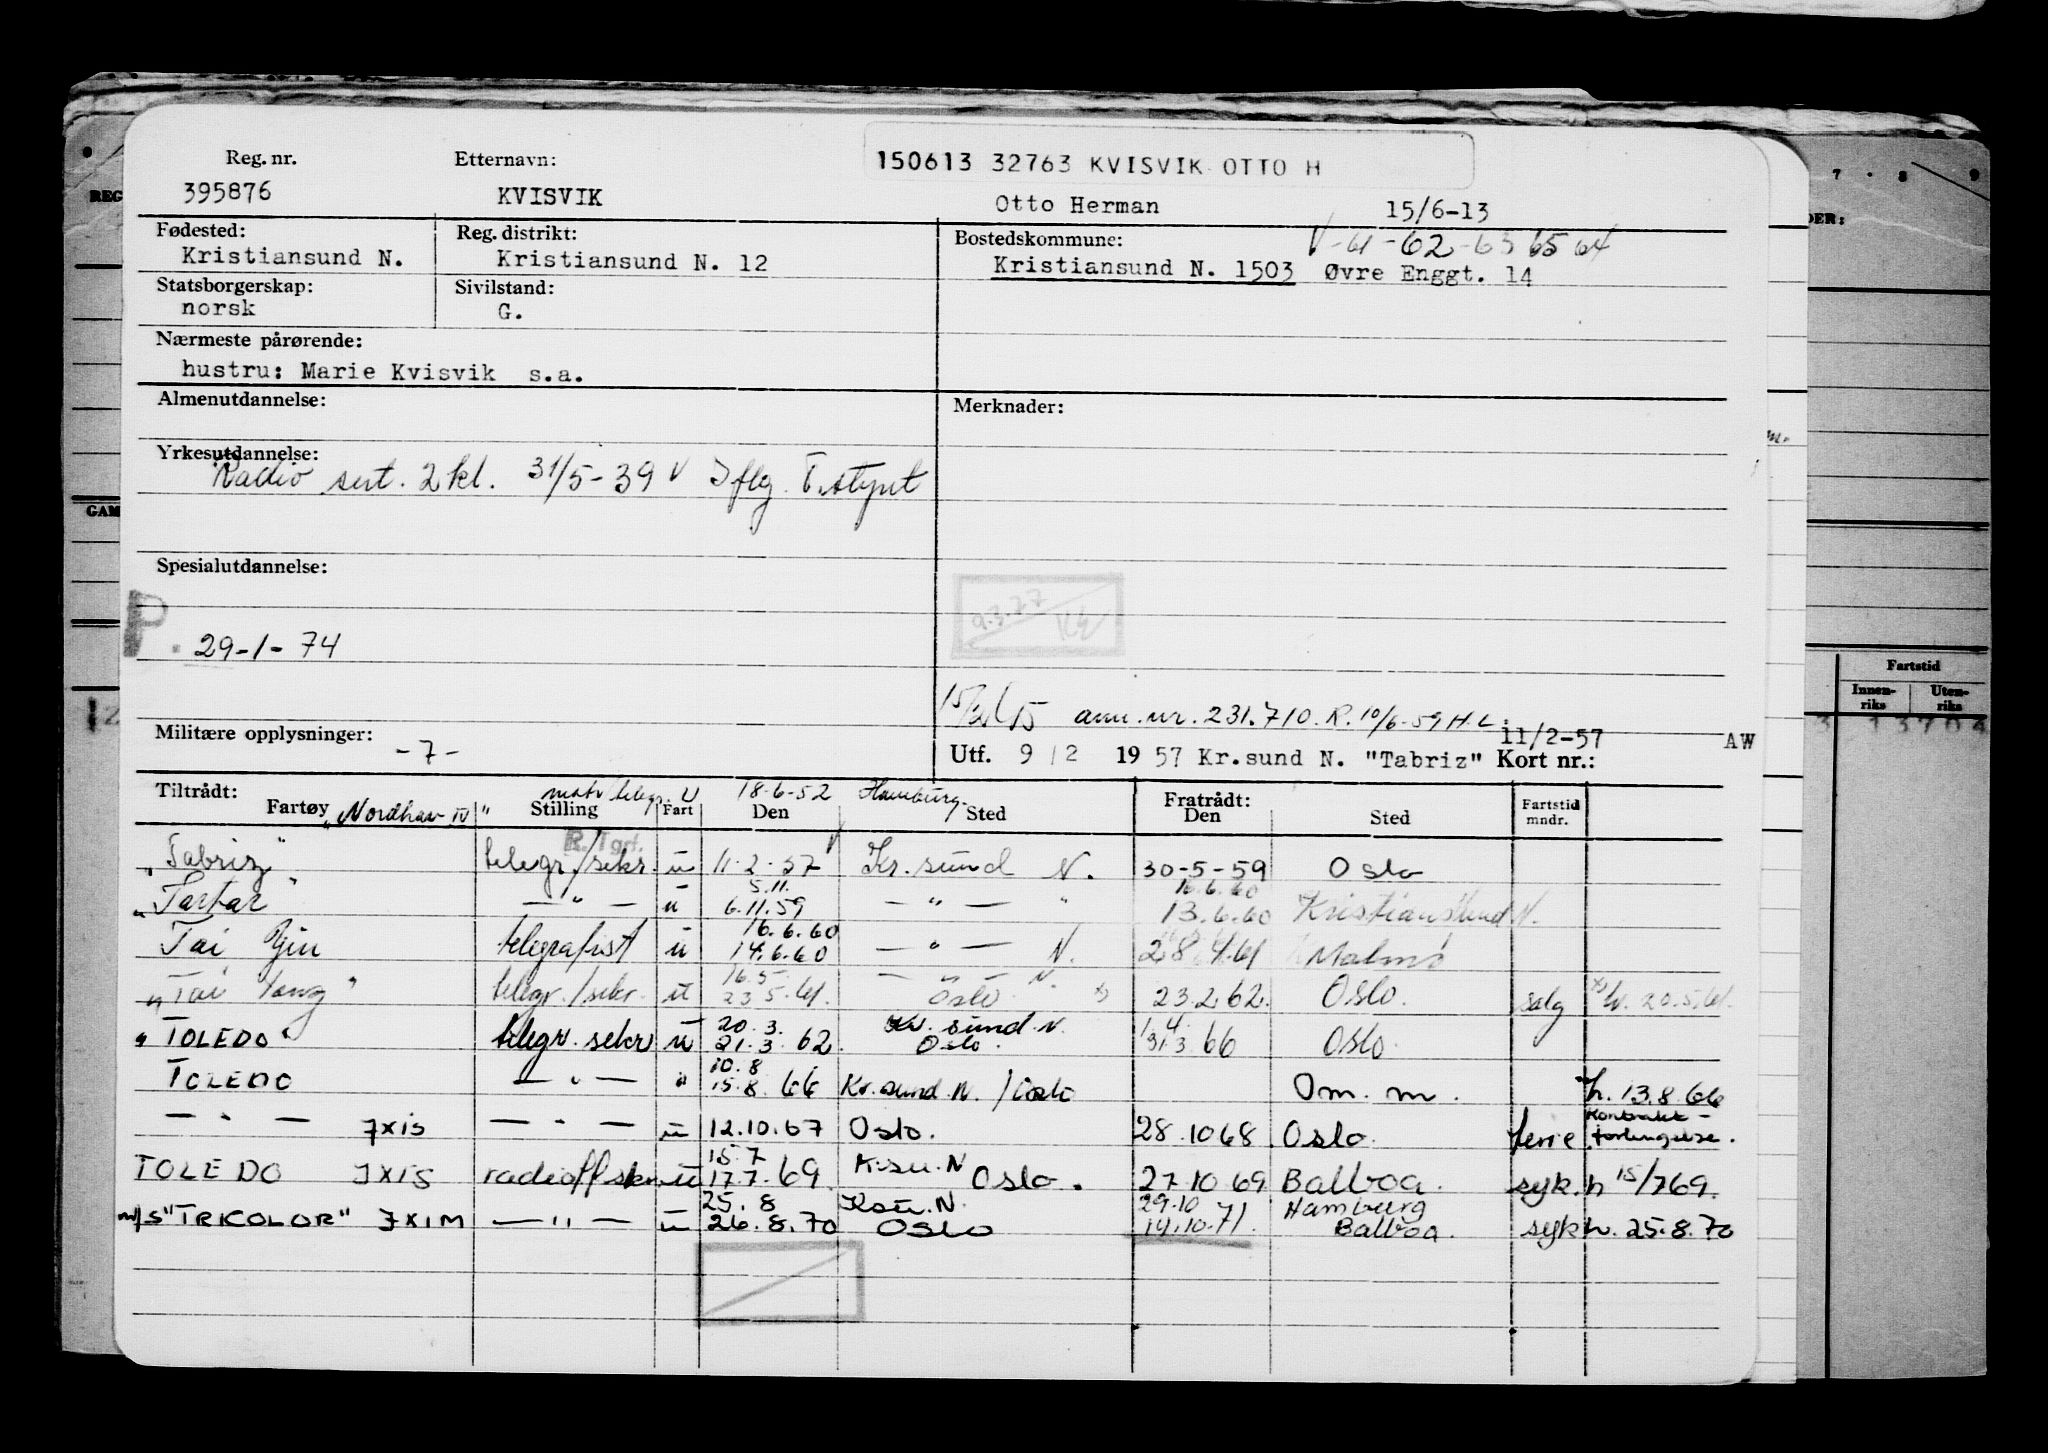 150613 32763 KVISVIK OTTO H
Reg. nr. Etternavn:
395876 KVISVIK Otto Herman 15/6-13
Fødested: Reg. distrikt: Bostedskommune: V-61-62-63 65 64
Kristiansund N. Kristiansund N. 12 Kristiansund N. 1503 Øvre Enggt. 14
Statsborgerskap: Sivilstand:
norsk G.
Nærmeste pårørende:
hustru: Marie Kvisvik s.a.
Almenutdannelse: Merknader:
Yrkesutdannelse:
Radio sert. 2 kl. 31/5-39 V Iflg. T.styret
Spesialutdannelse:
9.3.77 KE
P. 29-1-74
ann. nr. 231.710. R. 10/6-59 H.L.
Militære opplysninger: 11/2-57 AW
-7- Utf. 9/2 1957 Kr.sund N. "Tabriz" Kort nr.:
Tiltrådt: matr/telegr. U 18-6-52 Hamburg Fratrådt: Fartstid
Fartøy "Nordhav IV" Stilling Fart Den Sted Den Sted mndr.
R. Tgrf.
"Tabriz" telegr./sekr. u 11-2-57 Kr.sund N. 30-5-59 Oslo
5.11. 16.6.60
"Tartar" —"— u 6.11.59 —"— " 13.6.60 Kristiansund N.
16.6.60
Tai Yin telegrafist u 14.6.60 —"— N. 28.4.61 Malmö
16.5. —"— N.
"Tai Yang" telegr./sekr. u 23.5.61. Oslo x) 23.2.62. Oslo. salg x) h. 20.5.61.
20.3. Kr.sund.N. 1.4.
"TOLEDO" telegr. sekr u 21.3.62. Oslo. 31.3.66 Oslo.
10.8
TOLEDO —"— " 15.8.66 Kr.sund.N./Oslo Om.m. h. 13.8.66
kontrakt-
—"— JXIS —"— u 12.10.67 Oslo. 28.10 68. Oslo. ferie forlengelse.
15.7 K.su.N
TOLEDO JXIS radiooff skr. u 17.7.69. Oslo. 27.10 69 Balboa. syk. h 15/769.
25.8 Ksu.N. 29.10 Hamburg
m/S "TRICOLOR" JXIM —"— u 26.8.70 Oslo 14.10.71. Balboa. syk h. 25.8.70
REG
GAM
7 . 8 9
DER:
Fartstid
Innen-
riks
Uten-
riks